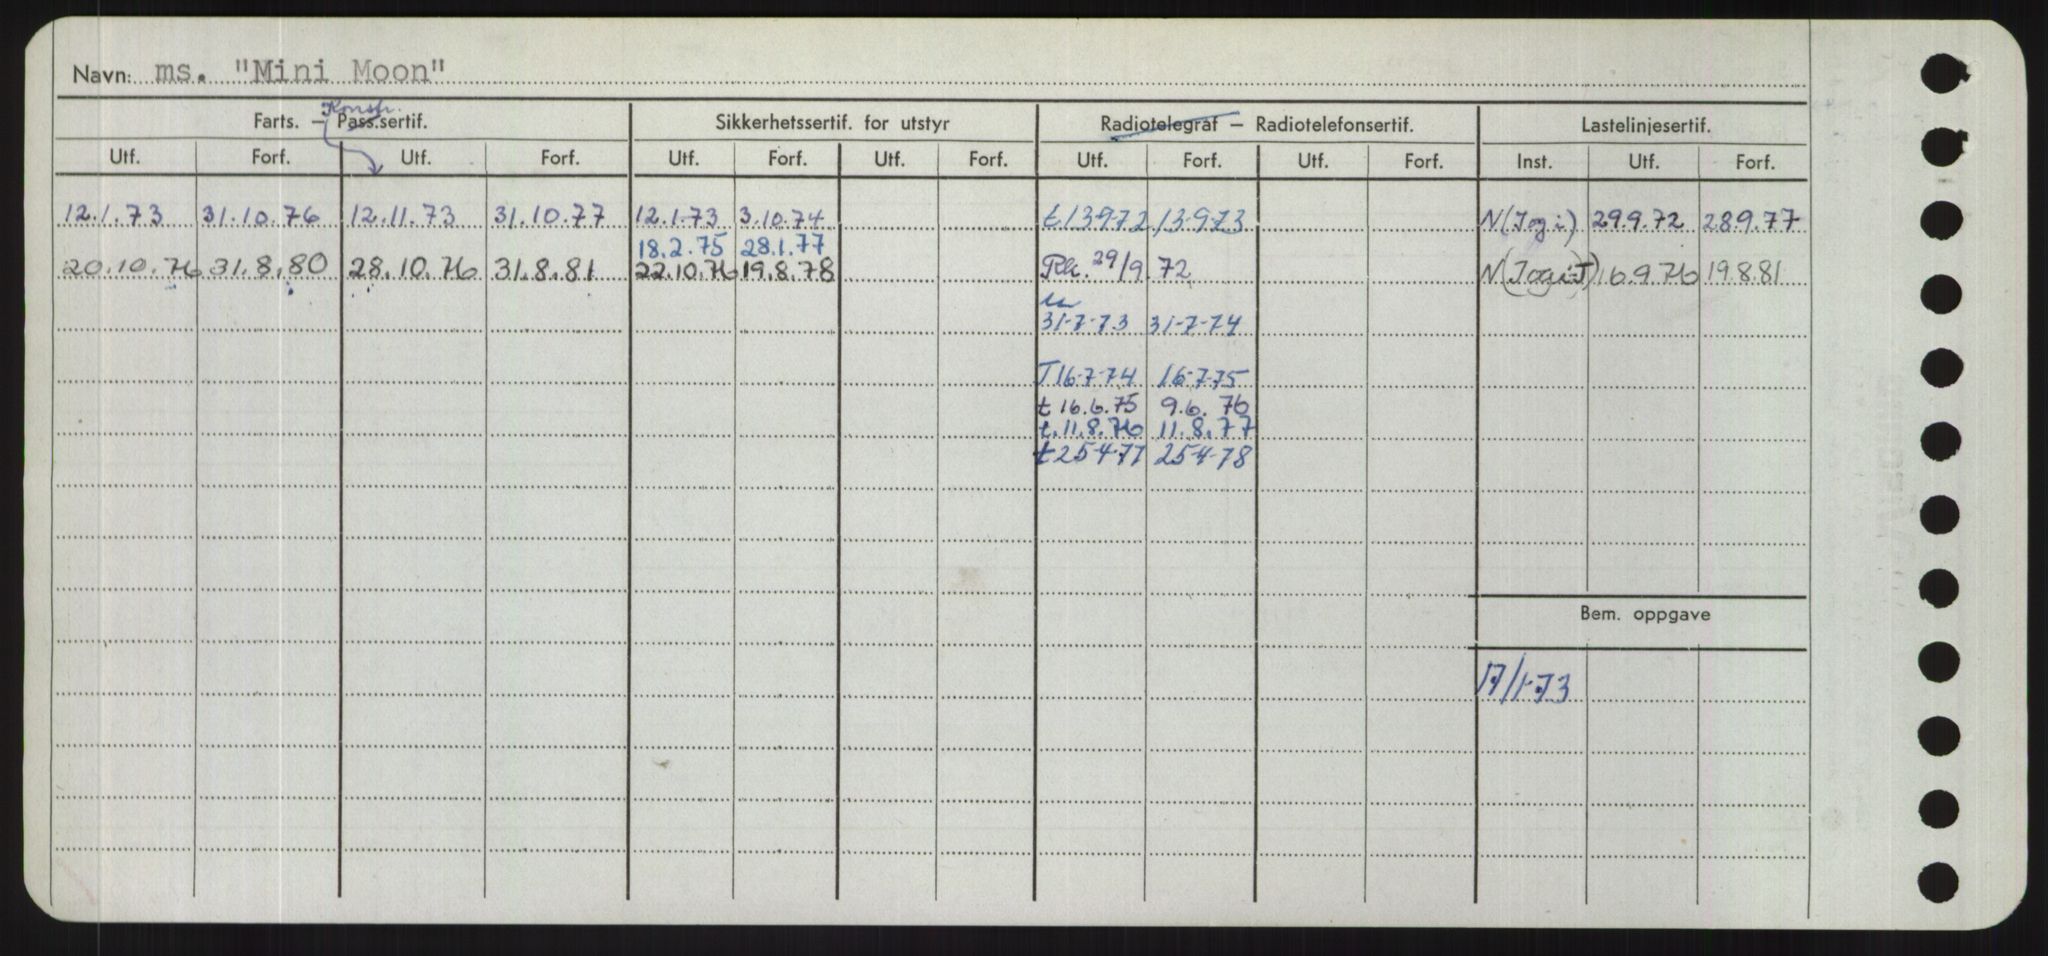 Navn: ms. "Mini Moon"
Konstr.
Farts. — Pass.sertif. Sikkerhetssertif. for utstyr Radiotelegraf — Radiotelefonsertif. Lastelinjesertif.
Utf. Forf. Utf. Forf. Utf. Forf. Utf. Forf. Utf. Forf. Utf. Forf. Inst. Utf. Forf.
12.1.73 31.10.76 12.11.73 31.10.77 12.1.73 3.10.74 t.13-9-72 13-9-73 N(Jogi) 29.9.72 28.9.77
18.2.75 28.1.77
20.10.76 31.8.80 28.10.76 31.8.81 22.10.76 19.8.78 Rk. 29/9 72 16.9.76 19.8.81
31-7-73 31-7-74
T 16-7-74 16-7-75
t 16.6.75 9.6.76
t.11.8.76 11.8.77
t 25-4-77 25-4-78
Bem. oppgave
17/1-73